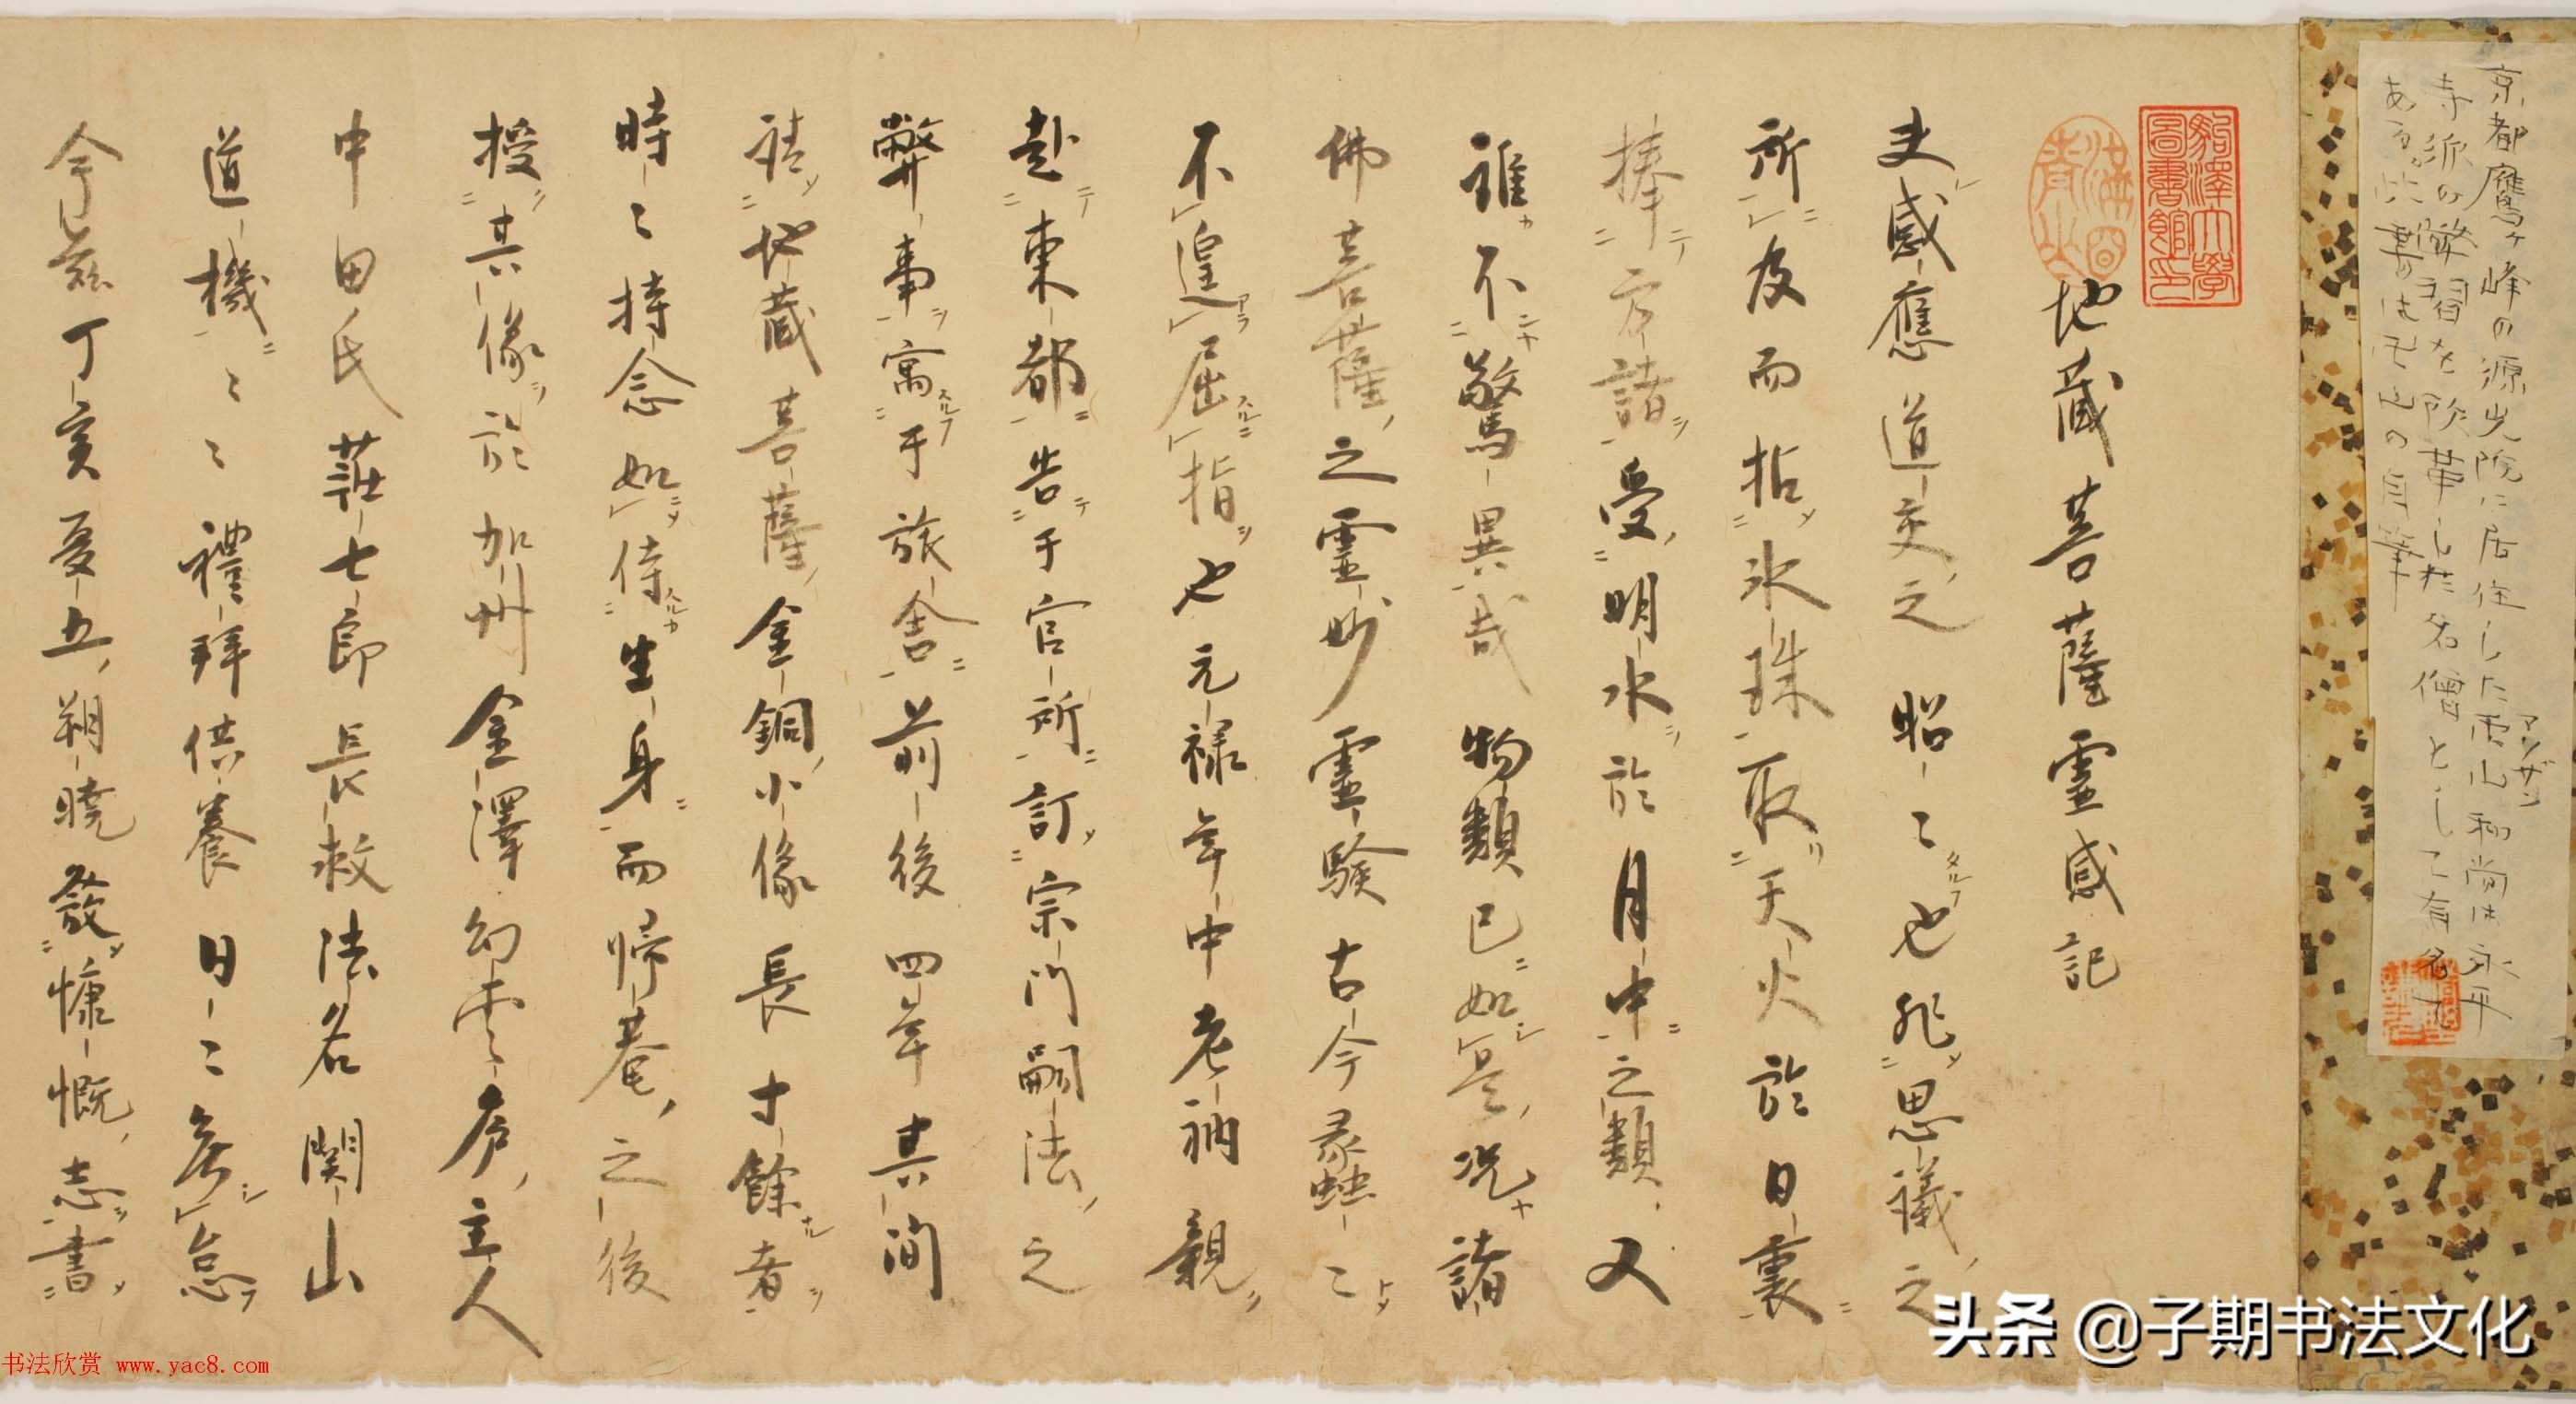 京都鷹ヶ峰の源光院に居住した卍山和尚は永平
マンザン
寺派の弊習を改革した名僧として有名で
ある。此書は卍山の自筆
駒澤大學圖書館印
地藏菩薩靈感記
夫感應道交之昭〻也非思議之
所及而拈氷珠取天火於日裏
捧方諸受明水於月中之類又
誰不驚異哉物類已如是況諸
佛菩薩之靈妙靈驗古今蠡〻
不遑屈指也元禄年中老衲親
赴東都告于官所訂宗門嗣法之
弊事寓于旅舎前後四年其間
請地藏菩薩金銅小像長寸餘者
時〻持念如侍生身而歸菴之後
授其像於加州金澤幻雲庵主人
中田氏莊七郎長救法名関山
道機〻〻禮拜供養日〻無怠
今茲丁亥夏五朔曉發慷慨志書
头条 @子期书法文化
书法欣赏 www.yac8.com